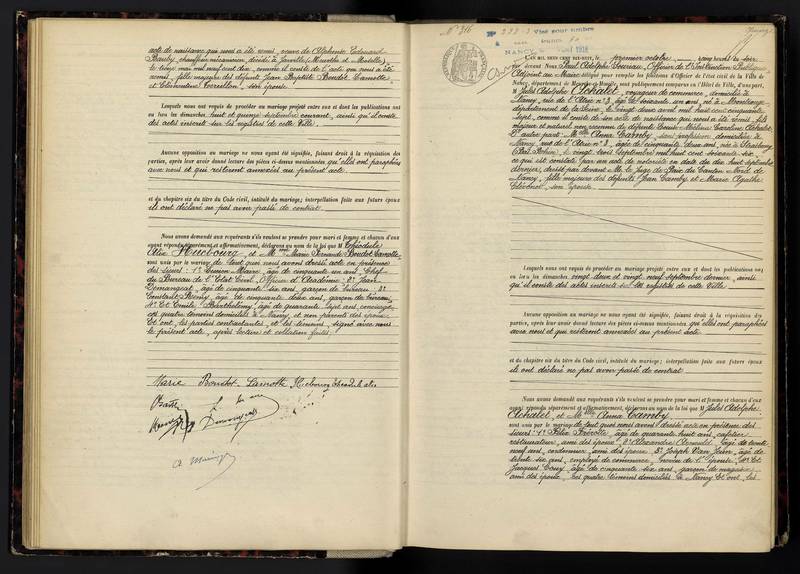 acte de naissance qui nous a été remis, veuve de Alphonse Edouard
Bauby, chauffeur mécanicien, décédé à Jarville (Meurthe et Moselle)
le mai mil neuf cent dix, comme il conste de l'acte qui nous a été
remis, fille majeure des défunts Jean Baptiste Boudot Lamotte
et Clémentine son épouse
Lesquels nous ont requis de procéder au mariage projeté entre eux et dont les publications ont
eu lieu les dimanches, huit et quinze septembre courant, ainsi qu'il conste
des actes inscrits sur les registres de cette Ville.
Aucune opposition au mariage ne nous ayant été signifiée, faisant droit à la réquisition des
parties, après leur avoir donné lecture des pièces ci-dessus mentionnées qu'elles ont paraphées
avec nous et qui resteront annexées au présent acte
et du chapitre six du titre du Code civil, intitulé du mariage; interpellation faite aux futurs époux
ils ont déclaré ne pas avoir passé de contrat
Nous avons demandé aux requérants s'ils veulent se prendre pour mari et femme et chacun d'eux
ayant répondu séparément et affirmativement, déclarons au nom de la loi que M Théodule
Alix et Mme Marie Fernande Boudot Lamotte
sont unis par le mariage de tout quoi nous avons dressé acte en présence
des sieurs : 1° Simon Maire, âgé de cinquante un ans, Chef
du Bureau de l'Etat Civil, Officier d'Académie 2° Jean
Demangeot, âgé de cinquante six ans, garçon de bureau 3°
Constant âgé de cinquante deux ans, garçon de bureau,
4° Emile Barthélemy, âgé de quarante sept ans, concierge,
les quatre témoins domiciliés à Nancy, et non parents des époux
Et ont, les parties contractantes, et les témoins, signé avec nous
le présent acte, après lecture et collation faites.
Marie Boudot-Lamotte Théodule alix
N° 316
Visé pour timbre
NANCY 1918
L'an mil neuf cent dix-huit, le premier octobre du soir
Par devant Nous Paul Adolphe Officier de l'Instruction Publique
Adjoint au Maire délégué pour remplir les fonctions d'Officier de l'état civil de la Ville de
Nancy, département de Meurthe-et-Moselle, sont publiquement comparus en l'Hôtel de Ville, d'une part,
M Jules Adolphe Achalet, voyageur de commerce, domicilié à
Nancy, rue de l'Atrie n° 3, âgé de soixante un ans, né à Montrouge
département de la Seine, le vingt deux avril mil huit cent cinquante
sept, comme il conste de son acte de naissance qui nous a été remis, fils
majeur et naturel non reconnu de défunte Caroline Achalet
D'autre part : Melle Anna Camby, sans profession domiciliée à
Nancy, rue de l'Atrie n° 3, âgée de cinquante deux ans, née à Strasbourg
(Bas Rhin), le vingt trois Septembre mil huit cent soixante six,
ce qui est constaté par un acte de notoriété en date du dix huit septembre
dernier, dressé par devant M. le Juge de Paix du Canton Nord de
Nancy, fille majeure des défunts Jean Camby et Marie Agathe
son épouse.
Lesquels nous ont requis de procéder au mariage projeté entre eux et dont les publications ont
eu lieu les dimanches, vingt deux et vingt neuf septembre dernier, ainsi
qu'il conste des actes inscrits sur les registres de cette Ville
Aucune opposition au mariage ne nous ayant été signifiée, faisant droit à la réquisition des
parties, après leur avoir donné lecture des pièces ci-dessus mentionnées qu'elles ont paraphées
avec nous et qui resteront annexées au présent acte
et du chapitre six du titre du Code civil, intitulé du mariage; interpellation faite aux futurs époux
ils ont déclaré ne pas avoir passé de contrat
Nous avons demandé aux requérants s'ils veulent se prendre pour mari et femme et chacun d'eux
ayant répondu séparément et affirmativement, déclarons au nom de la loi que M Jules Adolphe
Achalet et Melle Anna Camby
sont unis par le mariage de tout quoi nous avons dressé acte en présence des
sieurs : 1° Félix âgé de quarante huit ans, cafetier
restaurateur, ami des époux 2° Alexandre âgé de trente
neuf ans, cordonnier, ami des époux 3° Joseph Van âgé de
trente six ans, employé de commerce, neveu de l'épouse 4° Et
Jacques âgé de cinquante six ans, garçon de magasin,
ami des époux, les quatre témoins domiciliés à Nancy Et ont, les